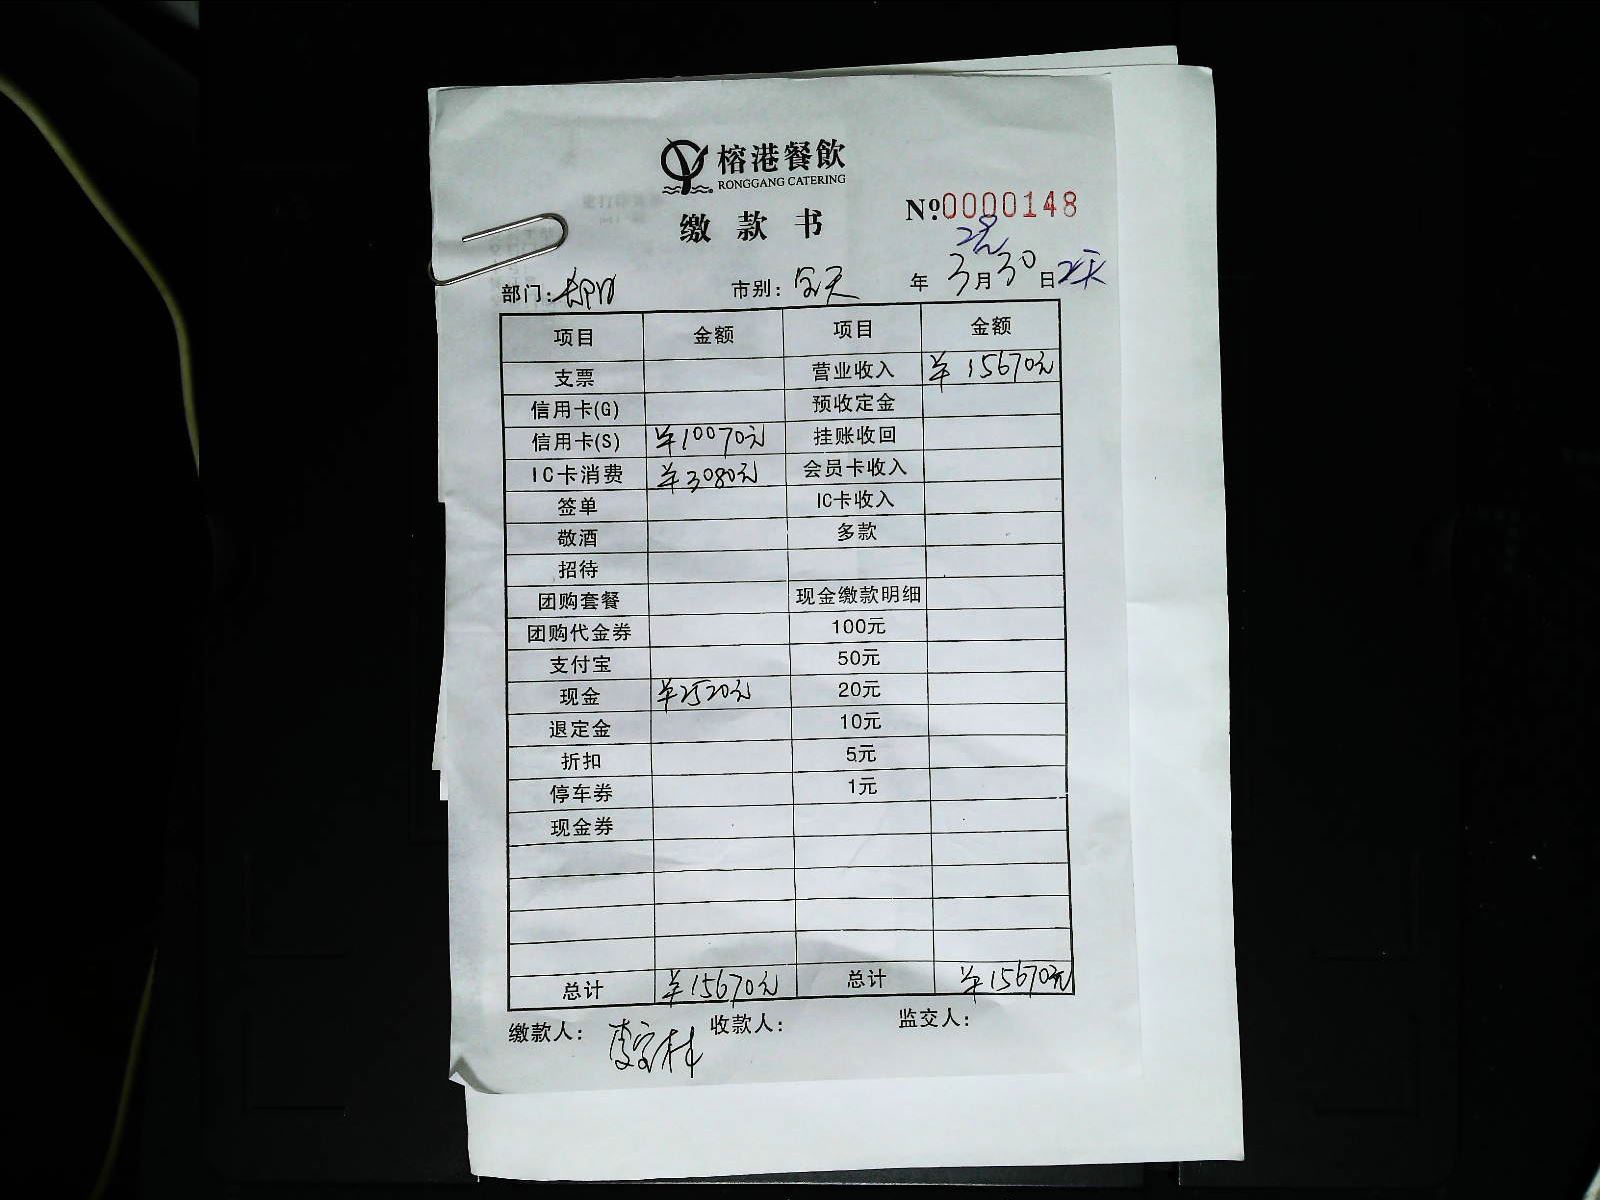 榕港餐飲
RONGGANG CATERING
缴款书
№:0000148
部门: 市别:全天 年3月30日2天
项目 金额 项目 金额
支票 营业收入 ¥15670元
信用卡(G) 预收定金
信用卡(S) ¥10070元 挂账收回
IC卡消费 ¥3080元 会员卡收入
签单 IC卡收入
敬酒 多款
招待
团购套餐 现金缴款明细
团购代金券 100元
支付宝 50元
现金 ¥2520元 20元
退定金 10元
折扣 5元
停车券 1元
现金券
总计 ¥15670元 总计 ¥15670元
缴款人: 收款人: 监交人: